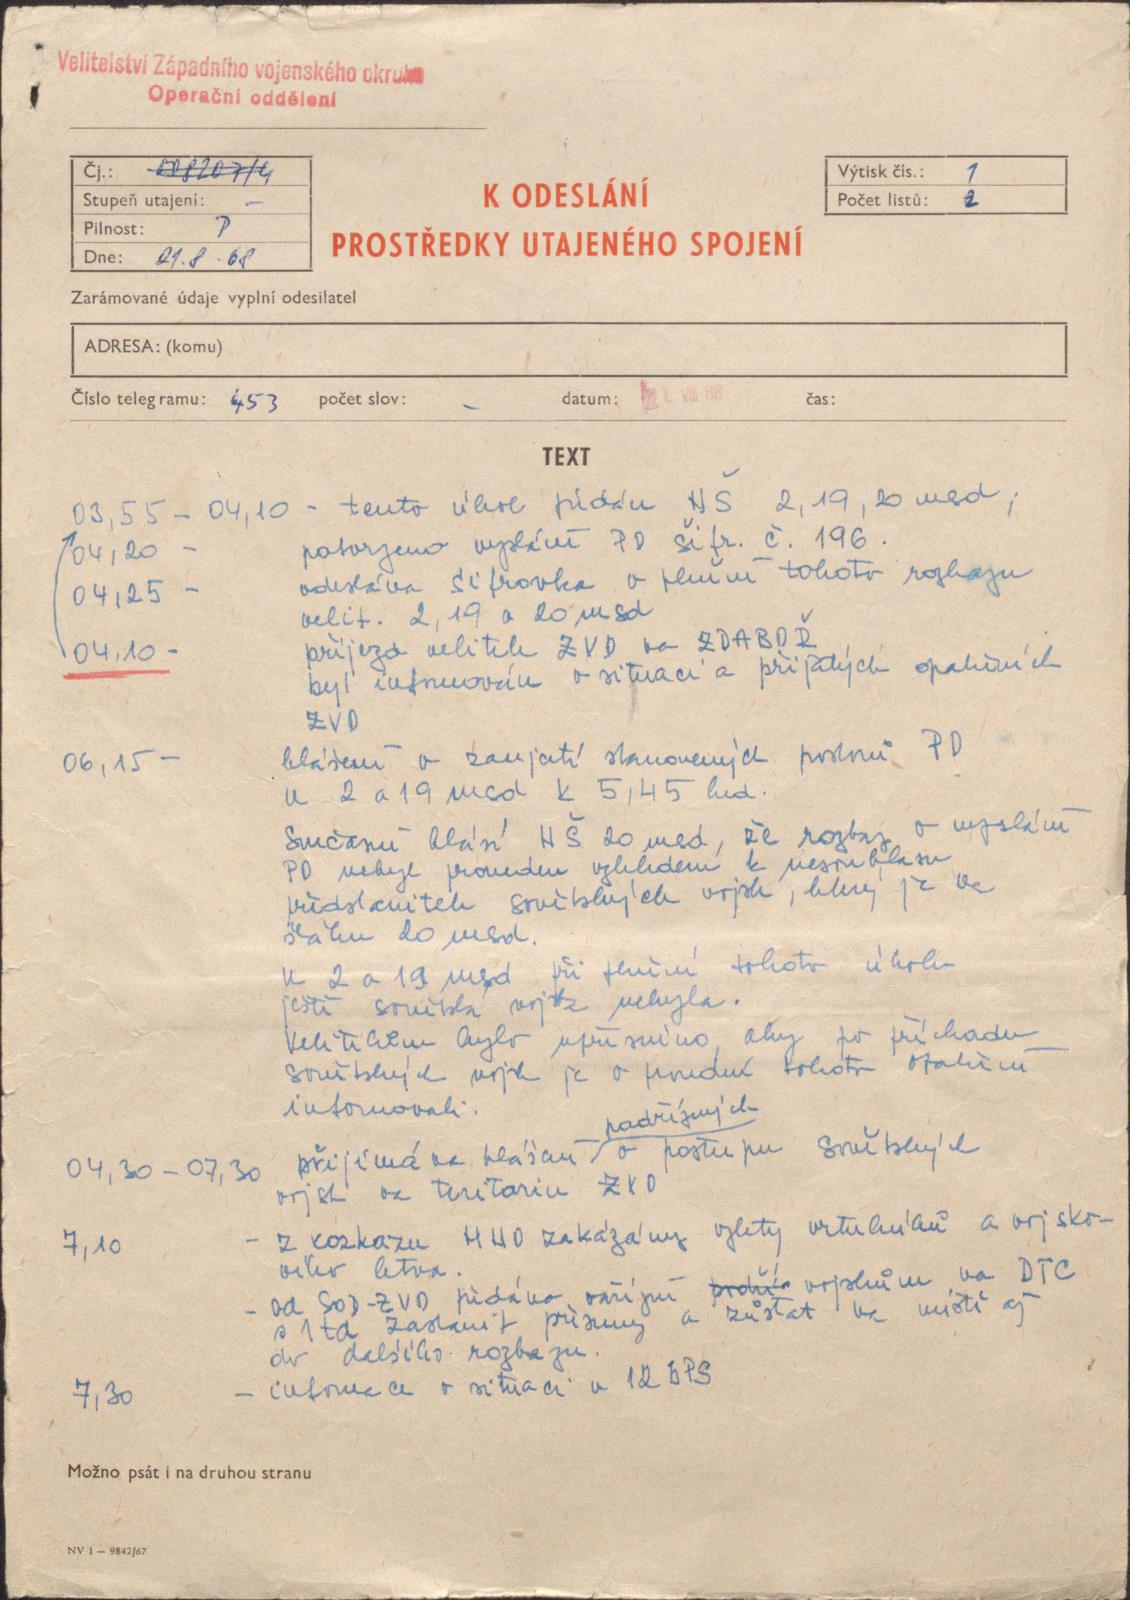 Velitelství Západního vojenského okruhu
Operační oddělení
Čj.: 008207/4
Stupeň utajení: –
Pilnost: P
Dne: 21.8.68
K ODESLÁNÍ
PROSTŘEDKY UTAJENÉHO SPOJENÍ
Výtisk čís.: 1
Počet listů: 2
Zarámované údaje vyplní odesilatel
ADRESA: (komu)
Číslo telegramu: 453 počet slov: – datum: 21. VIII 68 čas:
TEXT
03,55 – 04,10 – tento úkol předán NŠ 2, 19, 20 msd ;
04,20 – potvrzeno vyslání PD šifr. č. 196.
04,25 – odeslána šifrovka o plnění tohoto rozkazu
velit. 2, 19 a 20 msd
04,10 – příjezd velitele ZVO na
byl informován o situaci a přijatých opatřeních
ZVO
06,15 – hlášení o zaujetí stanovených prostorů PD
u 2 a 19 msd k 5,45 hod.
Současně hlásí NŠ 20 msd, že rozkaz o vyslání
PD nebyl proveden vzhledem k nesouhlasu
představitele sovětských vojsk, který je ve
štábu 20 msd.
U 2 a 19 msd při plnění tohoto úkolu
ještě sovětská vojska nebyla.
Velitelům bylo upřesněno, aby po příchodu
sovětských vojsk je o provedení tohoto opatření
informovali.
04,30 – 07,30 přijímána hlášení podřízených o postupu sovětských
vojsk na teritoriu ZVO
7,10 – z rozkazu MNO zakázány vzlety vrtulníků a vojsko-
vého letva.
– od SOD-ZVO předáno nařízení vojskům na DTC
a 1 td zastavit přesuny a zůstat na místě až
do dalšího rozkazu.
7,30 – informace o situaci u 12 bPS
Možno psát i na druhou stranu
NV 1 – 9842/67